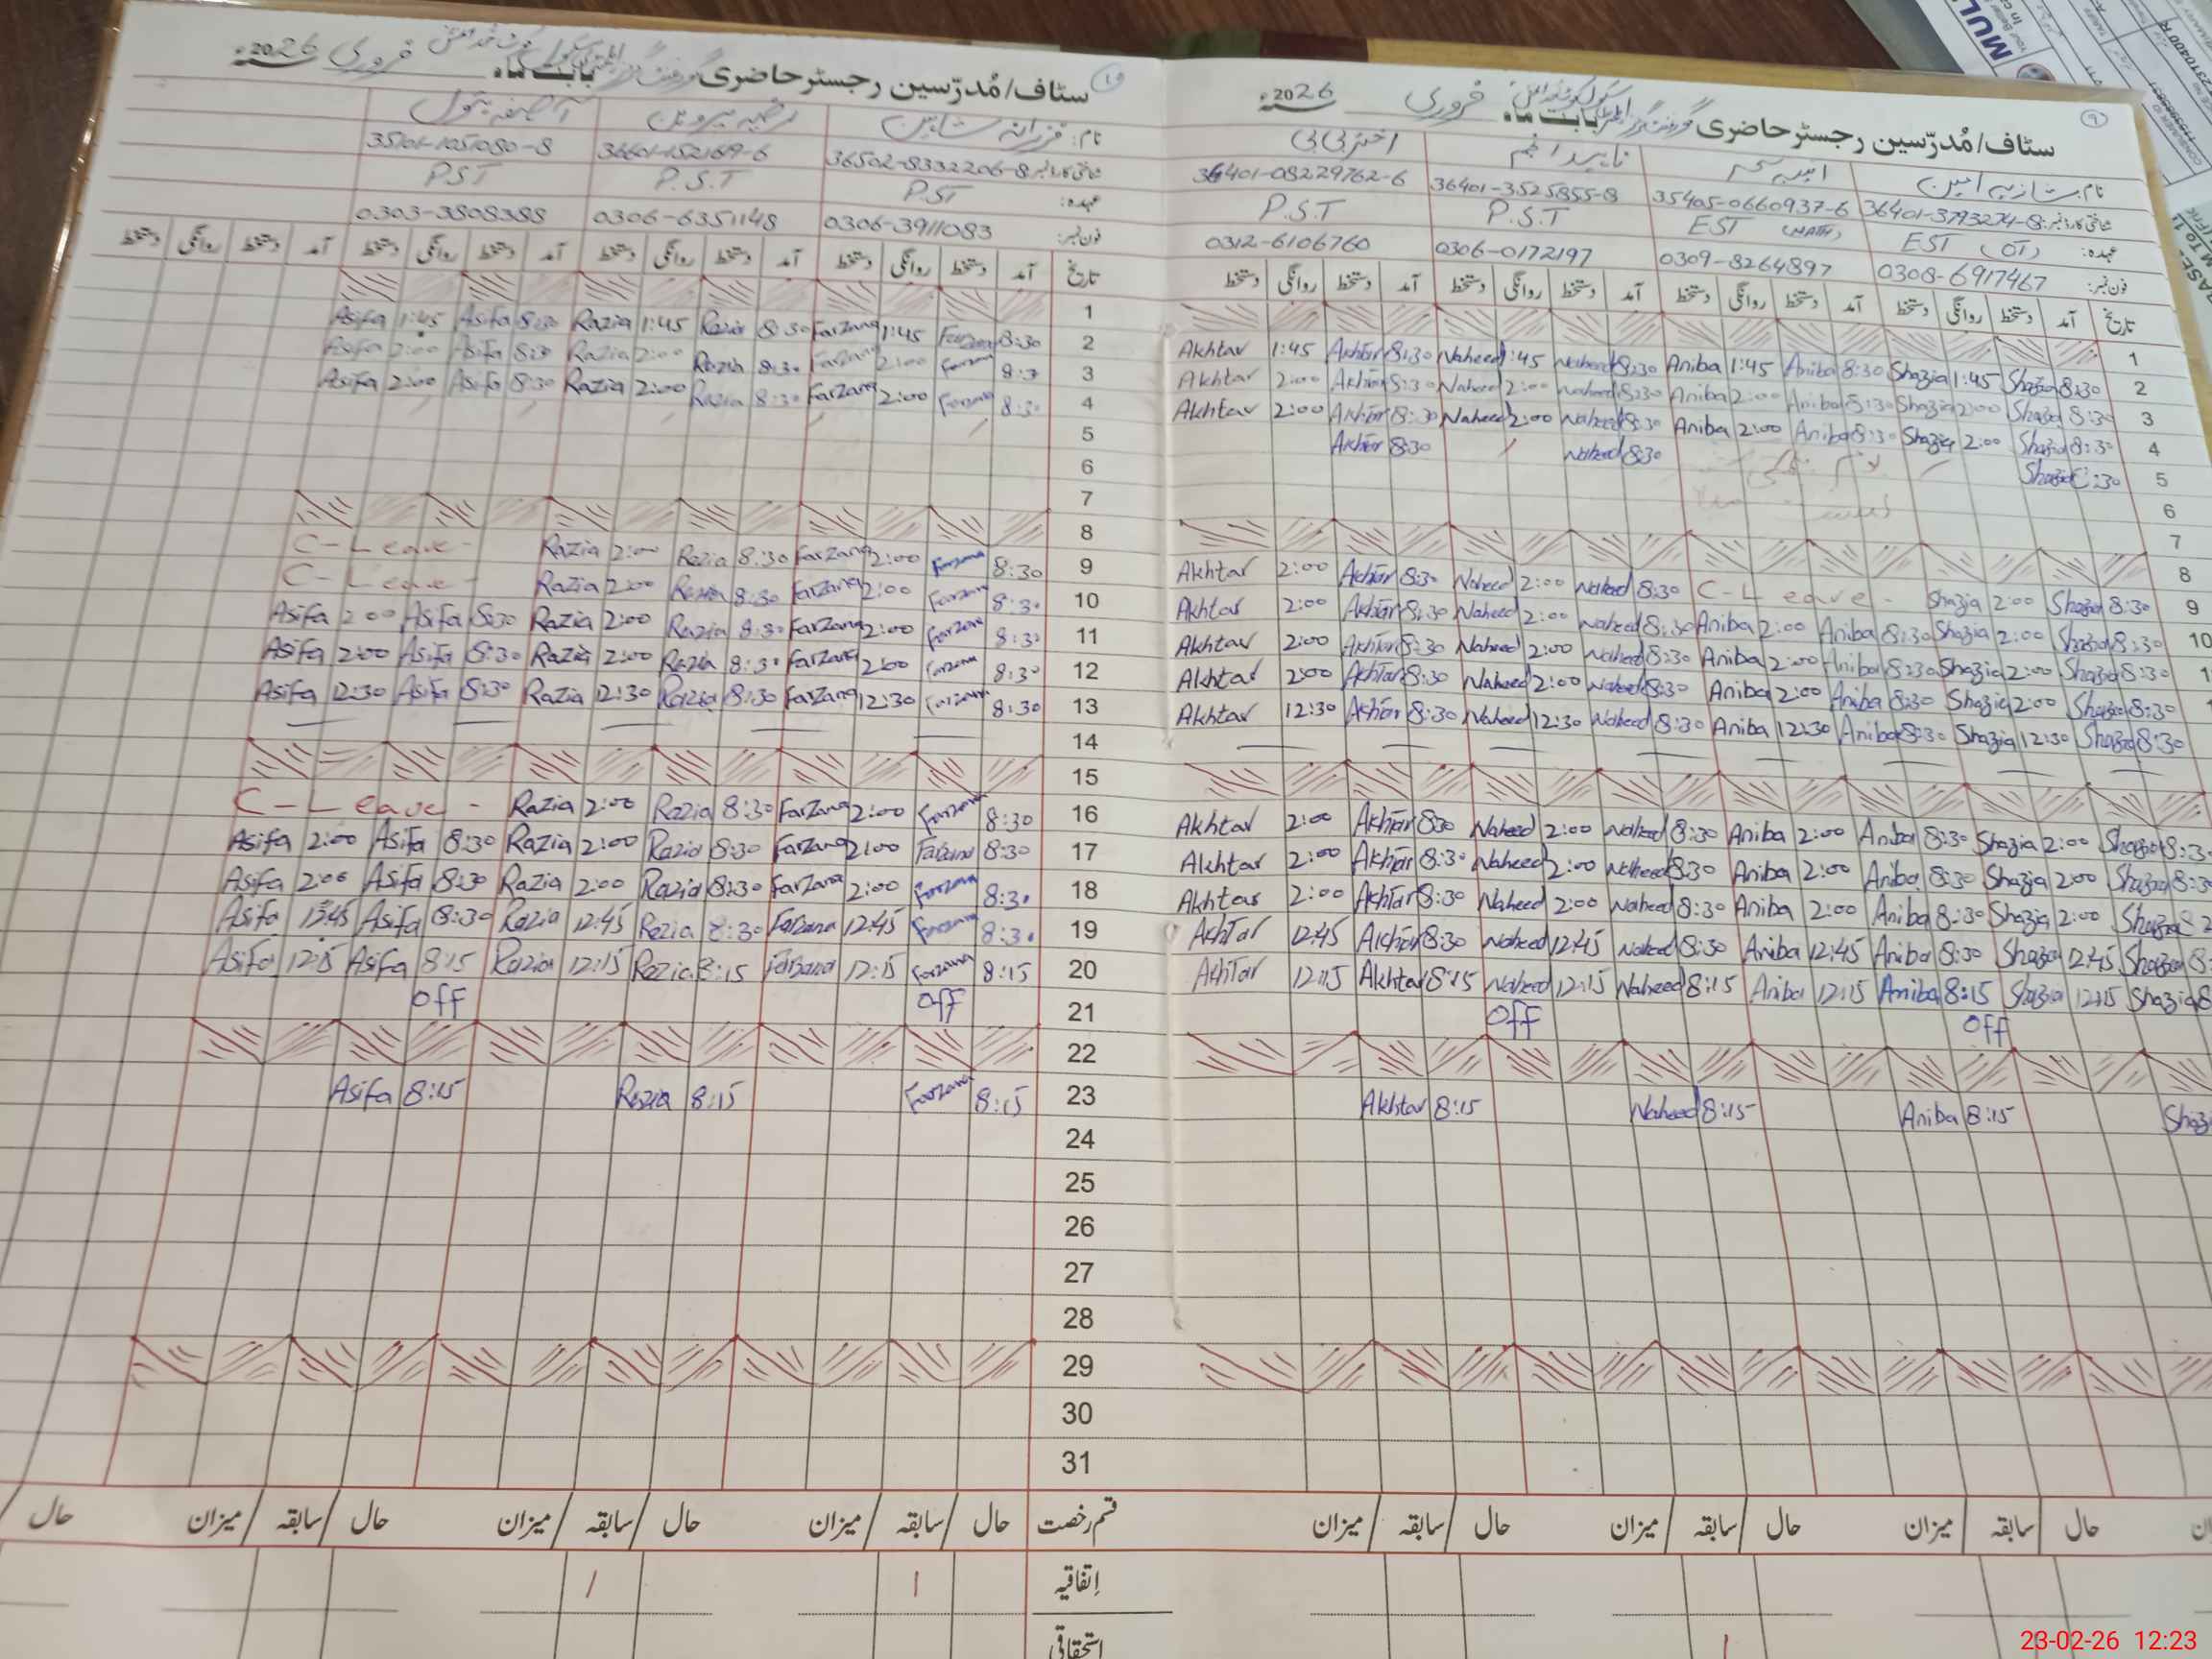 سٹاف/مُدرّسین رجسٹر حاضری بابت ماہ فروری 2026ء
نام: شازیہ امین
36401-3793274-8
EST (OT)
0308-6917467
35405-0660937-6
EST (MATH)
0309-8264897
ناہید انجم
36401-3525855-8
P.S.T
0306-0172197
اختر بی بی
36401-08229762-6
P.S.T
0312-6106760
تاریخ آمد دستخط روانگی دستخط آمد دستخط روانگی دستخط آمد دستخط روانگی دستخط آمد دستخط روانگی دستخط
1
2 Akhtar 1:45 Akhtar 8:30 Naheed 1:45 Naheed 8:30 Aniba 1:45 Aniba 8:30 Shazia 1:45 Shazia 8:30
3 Akhtar 2:00 Akhtar 8:30 Naheed 2:00 Naheed 8:30 Aniba 2:00 Aniba 8:30 Shazia 2:00 Shazia 8:30
4 Akhtar 2:00 Akhtar 8:30 Naheed 2:00 Naheed 8:30 Aniba 2:00 Aniba 8:30 Shazia 2:00 Shazia 8:30
5 Akhtar 8:30 Naheed 8:30 Shazia 8:30
6
7
8
9 Akhtar 2:00 Akhtar 8:30 Naheed 2:00 Naheed 8:30 C-Leave- Shazia 2:00 Shazia 8:30
10 Akhtar 2:00 Akhtar 8:30 Naheed 2:00 Naheed 8:30 Aniba 2:00 Aniba 8:30 Shazia 2:00 Shazia 8:30
Akhtar 2:00 Akhtar 8:30 Naheed 2:00 Naheed 8:30 Aniba 2:00 Aniba 8:30 Shazia 2:00 Shazia 8:30
Akhtar 2:00 Akhtar 8:30 Naheed 2:00 Naheed 8:30 Aniba 2:00 Aniba 8:30 Shazia 2:00 Shazia 8:30
Akhtar 12:30 Akhtar 8:30 Naheed 12:30 Naheed 8:30 Aniba 12:30 Aniba 8:30 Shazia 12:30 Shazia 8:30
Akhtar 2:00 Akhtar 8:30 Naheed 2:00 Naheed 8:30 Aniba 2:00 Aniba 8:30 Shazia 2:00 Shazia 8:3
Akhtar 2:00 Akhtar 8:30 Naheed 2:00 Naheed 8:30 Aniba 2:00 Aniba 8:30 Shazia 2:00 Shazia 8:30
Akhtar 2:00 Akhtar 8:30 Naheed 2:00 Naheed 8:30 Aniba 2:00 Aniba 8:30 Shazia 2:00
Akhtar 12:45 Akhtar 8:30 Naheed 12:45 Naheed 8:30 Aniba 12:45 Aniba 8:30 Shazia 12:45 Shazia 8:
Akhtar 12:15 Akhtar 8:15 Naheed 12:15 Naheed 8:15 Aniba 12:15 Aniba 8:15 Shazia 12:15 Shazia 8
Off Off
Akhtar 8:15 Naheed 8:15 Aniba 8:15 Shaz
حال سابقہ میزان حال سابقہ میزان حال سابقہ میزان
سٹاف/مُدرّسین رجسٹر حاضری بابت ماہ فروری 2026ء
نام: فرزانہ شاہین
36502-8332206-8
عہدہ: PST
فون نمبر: 0306-3911083
رضیہ پروین
P.S.T
0306-6351148
آصفہ بتول
35101-1051080-8
PST
0303-3808388
تاریخ آمد دستخط روانگی دستخط آمد دستخط روانگی دستخط آمد دستخط روانگی دستخط آمد دستخط روانگی دستخط
1
2 Asifa 1:45 Asifa 8:30 Razia 1:45 Razia 8:30 Farzana 1:45 Farzana 8:30
3 Asifa 2:00 Asifa 8:30 Razia 2:00 Razia 8:30 Farzana 2:00 Farzana 8:3
4 Asifa 2:00 Asifa 8:30 Razia 2:00 Razia 8:30 Farzana 2:00 Farzana 8:30
5
6
7
8
9 C-Leave- Razia 2:00 Razia 8:30 Farzana 2:00 Farzana 8:30
10 C-Leave- Razia 2:00 Razia 8:30 Farzana 2:00 Farzana 8:30
11 Asifa 2:00 Asifa 8:30 Razia 2:00 Razia 8:30 Farzana 2:00 Farzana 8:30
12 Asifa 2:00 Asifa 8:30 Razia 2:00 Razia 8:30 Farzana 2:00 Farzana 8:30
13 Asifa 12:30 Asifa 8:30 Razia 12:30 Razia 8:30 Farzana 12:30 Farzana 8:30
14
15
16 C-Leave- Razia 2:00 Razia 8:30 Farzana 2:00 Farzana 8:30
17 Asifa 2:00 Asifa 8:30 Razia 2:00 Razia 8:30 Farzana 2:00 Farzana 8:30
18 Asifa 2:00 Asifa 8:30 Razia 2:00 Razia 8:30 Farzana 2:00 Farzana 8:30
19 Asifa 12:45 Asifa 8:30 Razia 12:45 Razia 8:30 Farzana 12:45 Farzana 8:30
20 Asifa 12:15 Asifa 8:15 Razia 12:15 Razia 8:15 Farzana 12:15 Farzana 8:15
21 Off Off
22
23 Asifa 8:15 Razia 8:15 Farzana 8:15
24
25
26
27
28
29
30
31
قسم رخصت حال سابقہ میزان حال سابقہ میزان حال سابقہ میزان حال
اتفاقیہ 1 1
استحقاقی
23-02-26 12:23